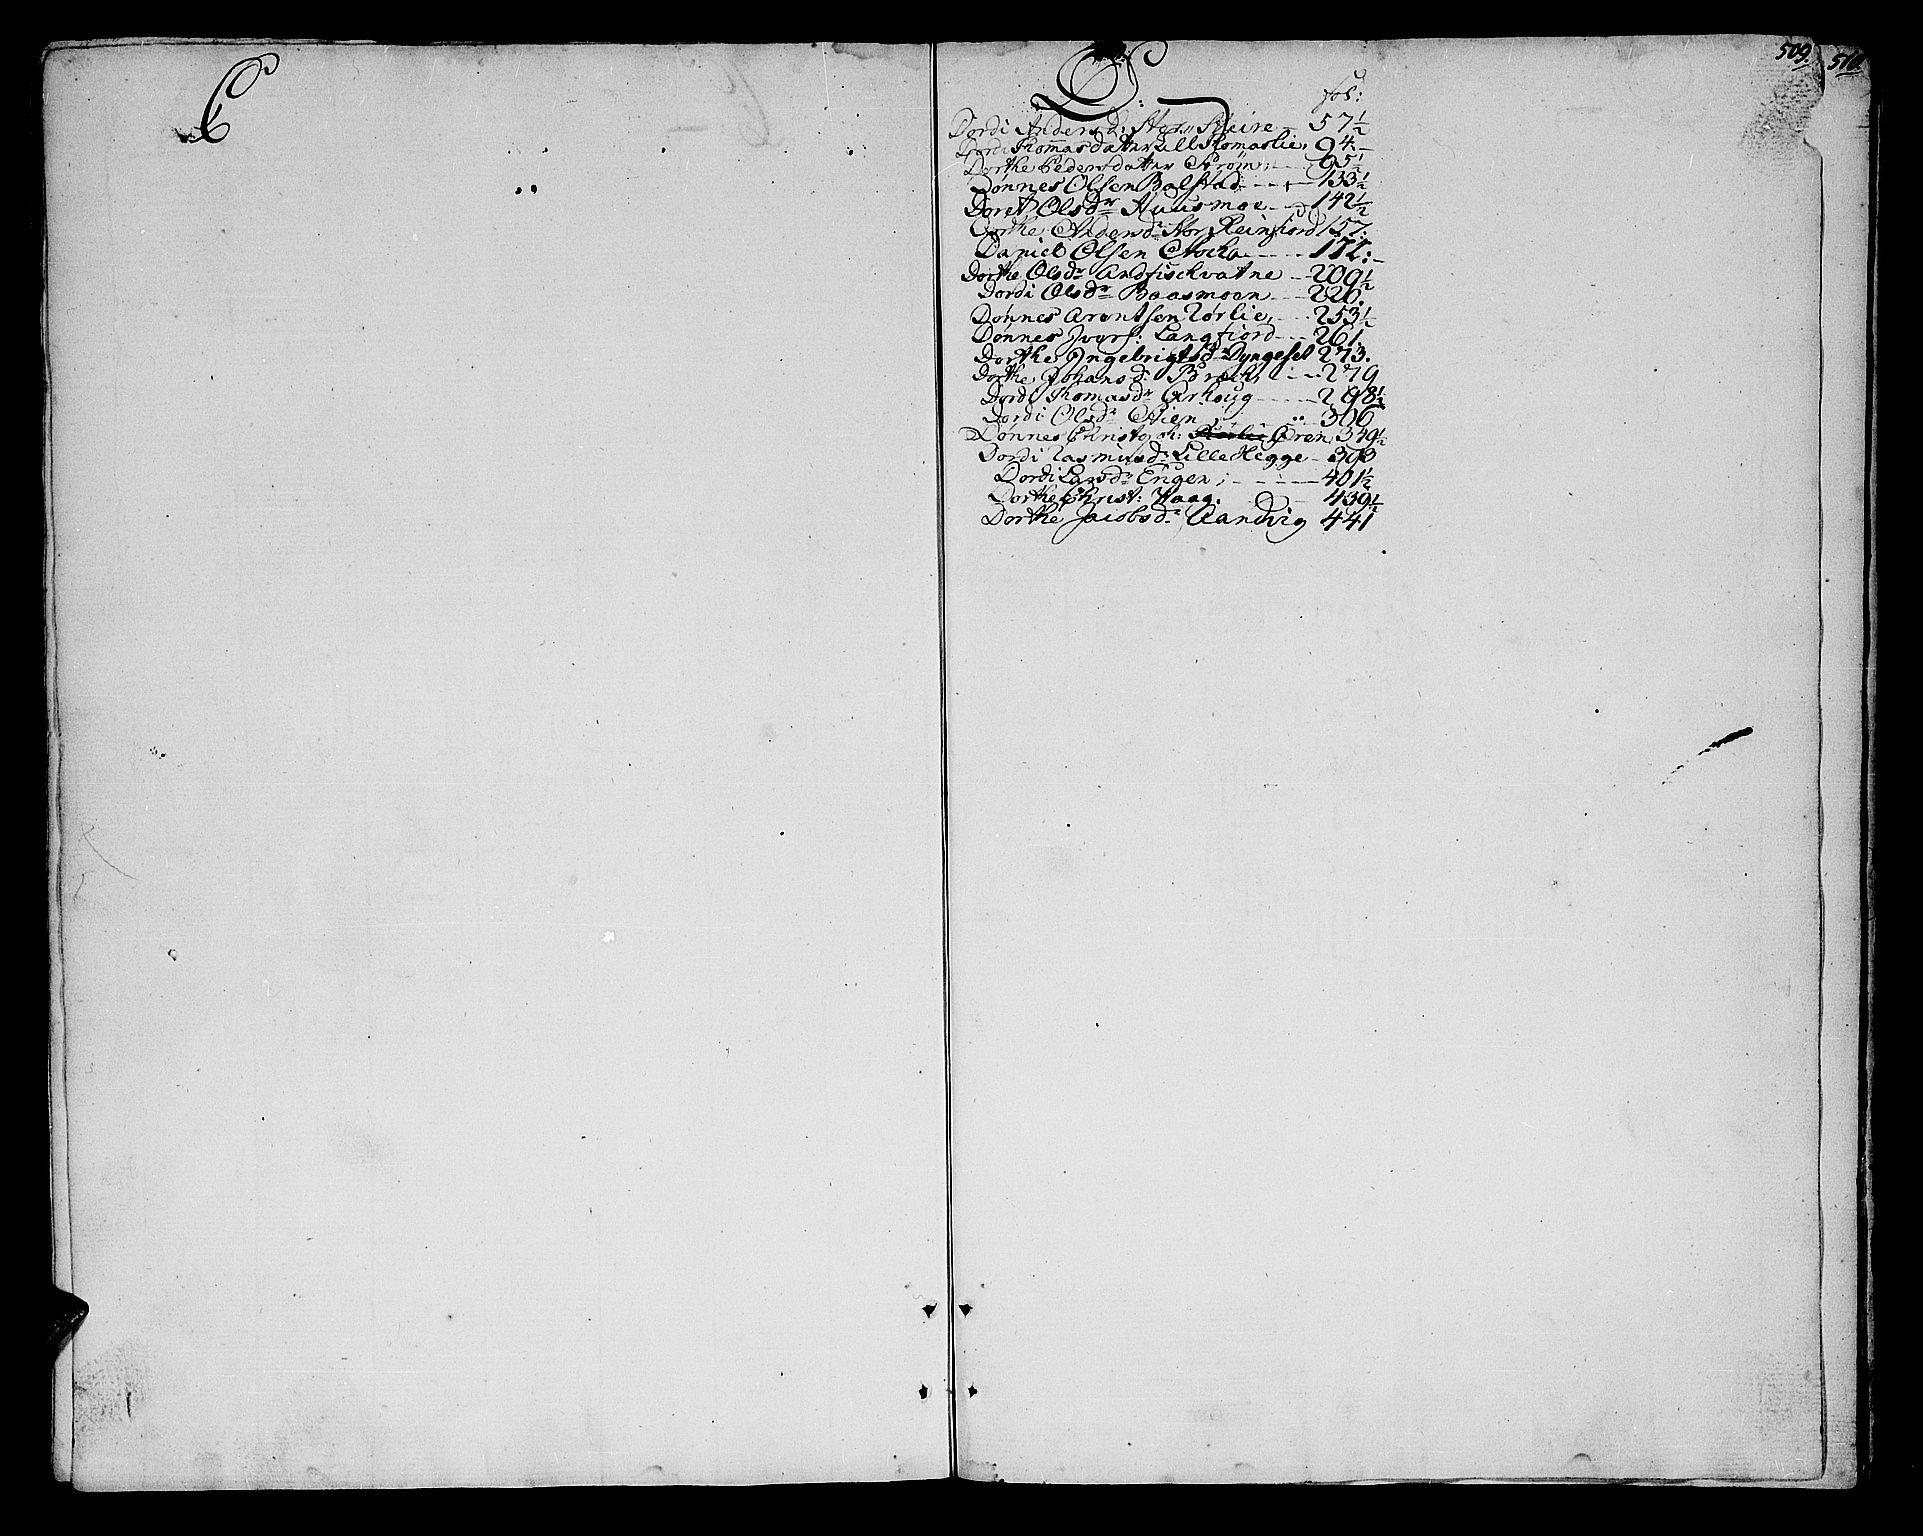 C
509.
510.
D.
fol:
Dordi Anders D: 57½
Dordi Thomasdatter Lill Thomaslie, 94.
Dorthe Pedersdatter Strøm, 95½
Dønnes Olsen Balstad 133½
Doret Olsdr Huusmoe 142½
Dorthe Andersdr Nor Reinfiord 157:
Daniel Olsen Stocka 171:
Dorthe Olsdr Andfischvatne 209½
Dordi Olsdr Baasmoen 226.
Dønnes Arentsen Lørlie, 253½
Dønnes Ivers: Langfiord 261.
Dorthe Ingebrigtsdr Dyngeset 273.
Dorthe Johansdr 279
Dordi Thomasdr Arhoug 298½
Dordi Olsdr Stien 306
Dønnes Christoph: Øren, 349½
Dordi Rasmusdr Lille Hegge 393
Dordi Larsdr Engen, 401½
Dorthe Christ: Haag. 439½
Dorthe Jacobsdr Aandvig 441